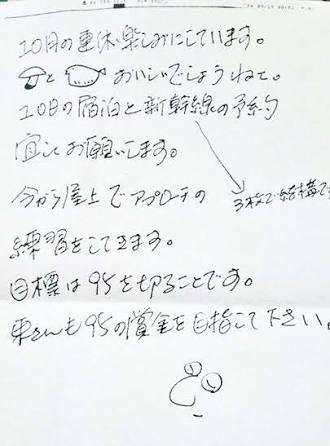 10月の連休楽しみにしています。
と おいしいでしょうねぇ。
10日の宿泊と新幹線の予約
宜しくお願いします。
3枚で結構で
今から屋上でアプローチの
練習をしてきます。
目標は95を切ることです。
東さんも95の賞金を目指して下さい。